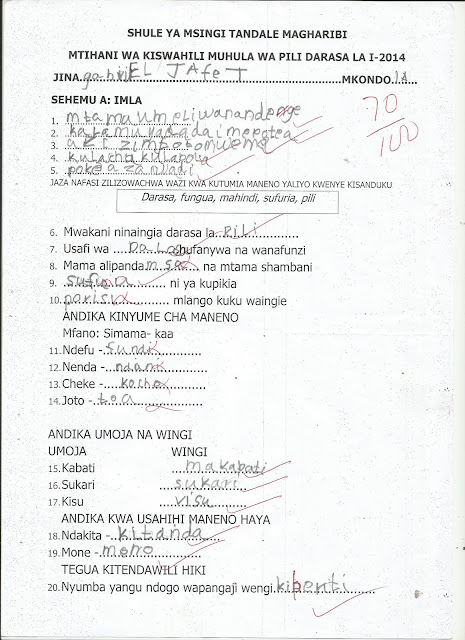 SHULE YA MSINGI TANDALE MAGHARIBI
MTIHANI WA KISWAHILI MUHULA WA PILI DARASA LA I-2014
JINA gabriEL JAfET MKONDO
SEHEMU A: IMLA
70
100
1. mtama
2. kata
3.
4. kulacha kulapola
5.
JAZA NAFASI ZILIZOWACHWA WAZI KWA KUTUMIA MANENO YALIYO KWENYE KISANDUKU
Darasa, fungua, mahindi, sufuria, pili
6. Mwakani ninaingia darasa la..PiLi
7. Usafi wa ........hufanywa na wanafunzi
8. Mama alipanda........ na mtama shambani
9. ........ ni ya kupikia
10. parisu........ mlango kuku waingie
ANDIKA KINYUME CHA MANENO
Mfano: Simama- kaa
11. Ndefu - sundi
12. Nenda - ndani
13. Cheke - kocho
14. Joto - toa
ANDIKA UMOJA NA WINGI
UMOJA WINGI
15. Kabati makabati
16. Sukari sukari
17. Kisu visu
ANDIKA KWA USAHIHI MANENO HAYA
18. Ndakita - kitanda
19. Mone - meno
TEGUA KITENDAWILI HIKI
20. Nyumba yangu ndogo wapangaji wengi. kibenti